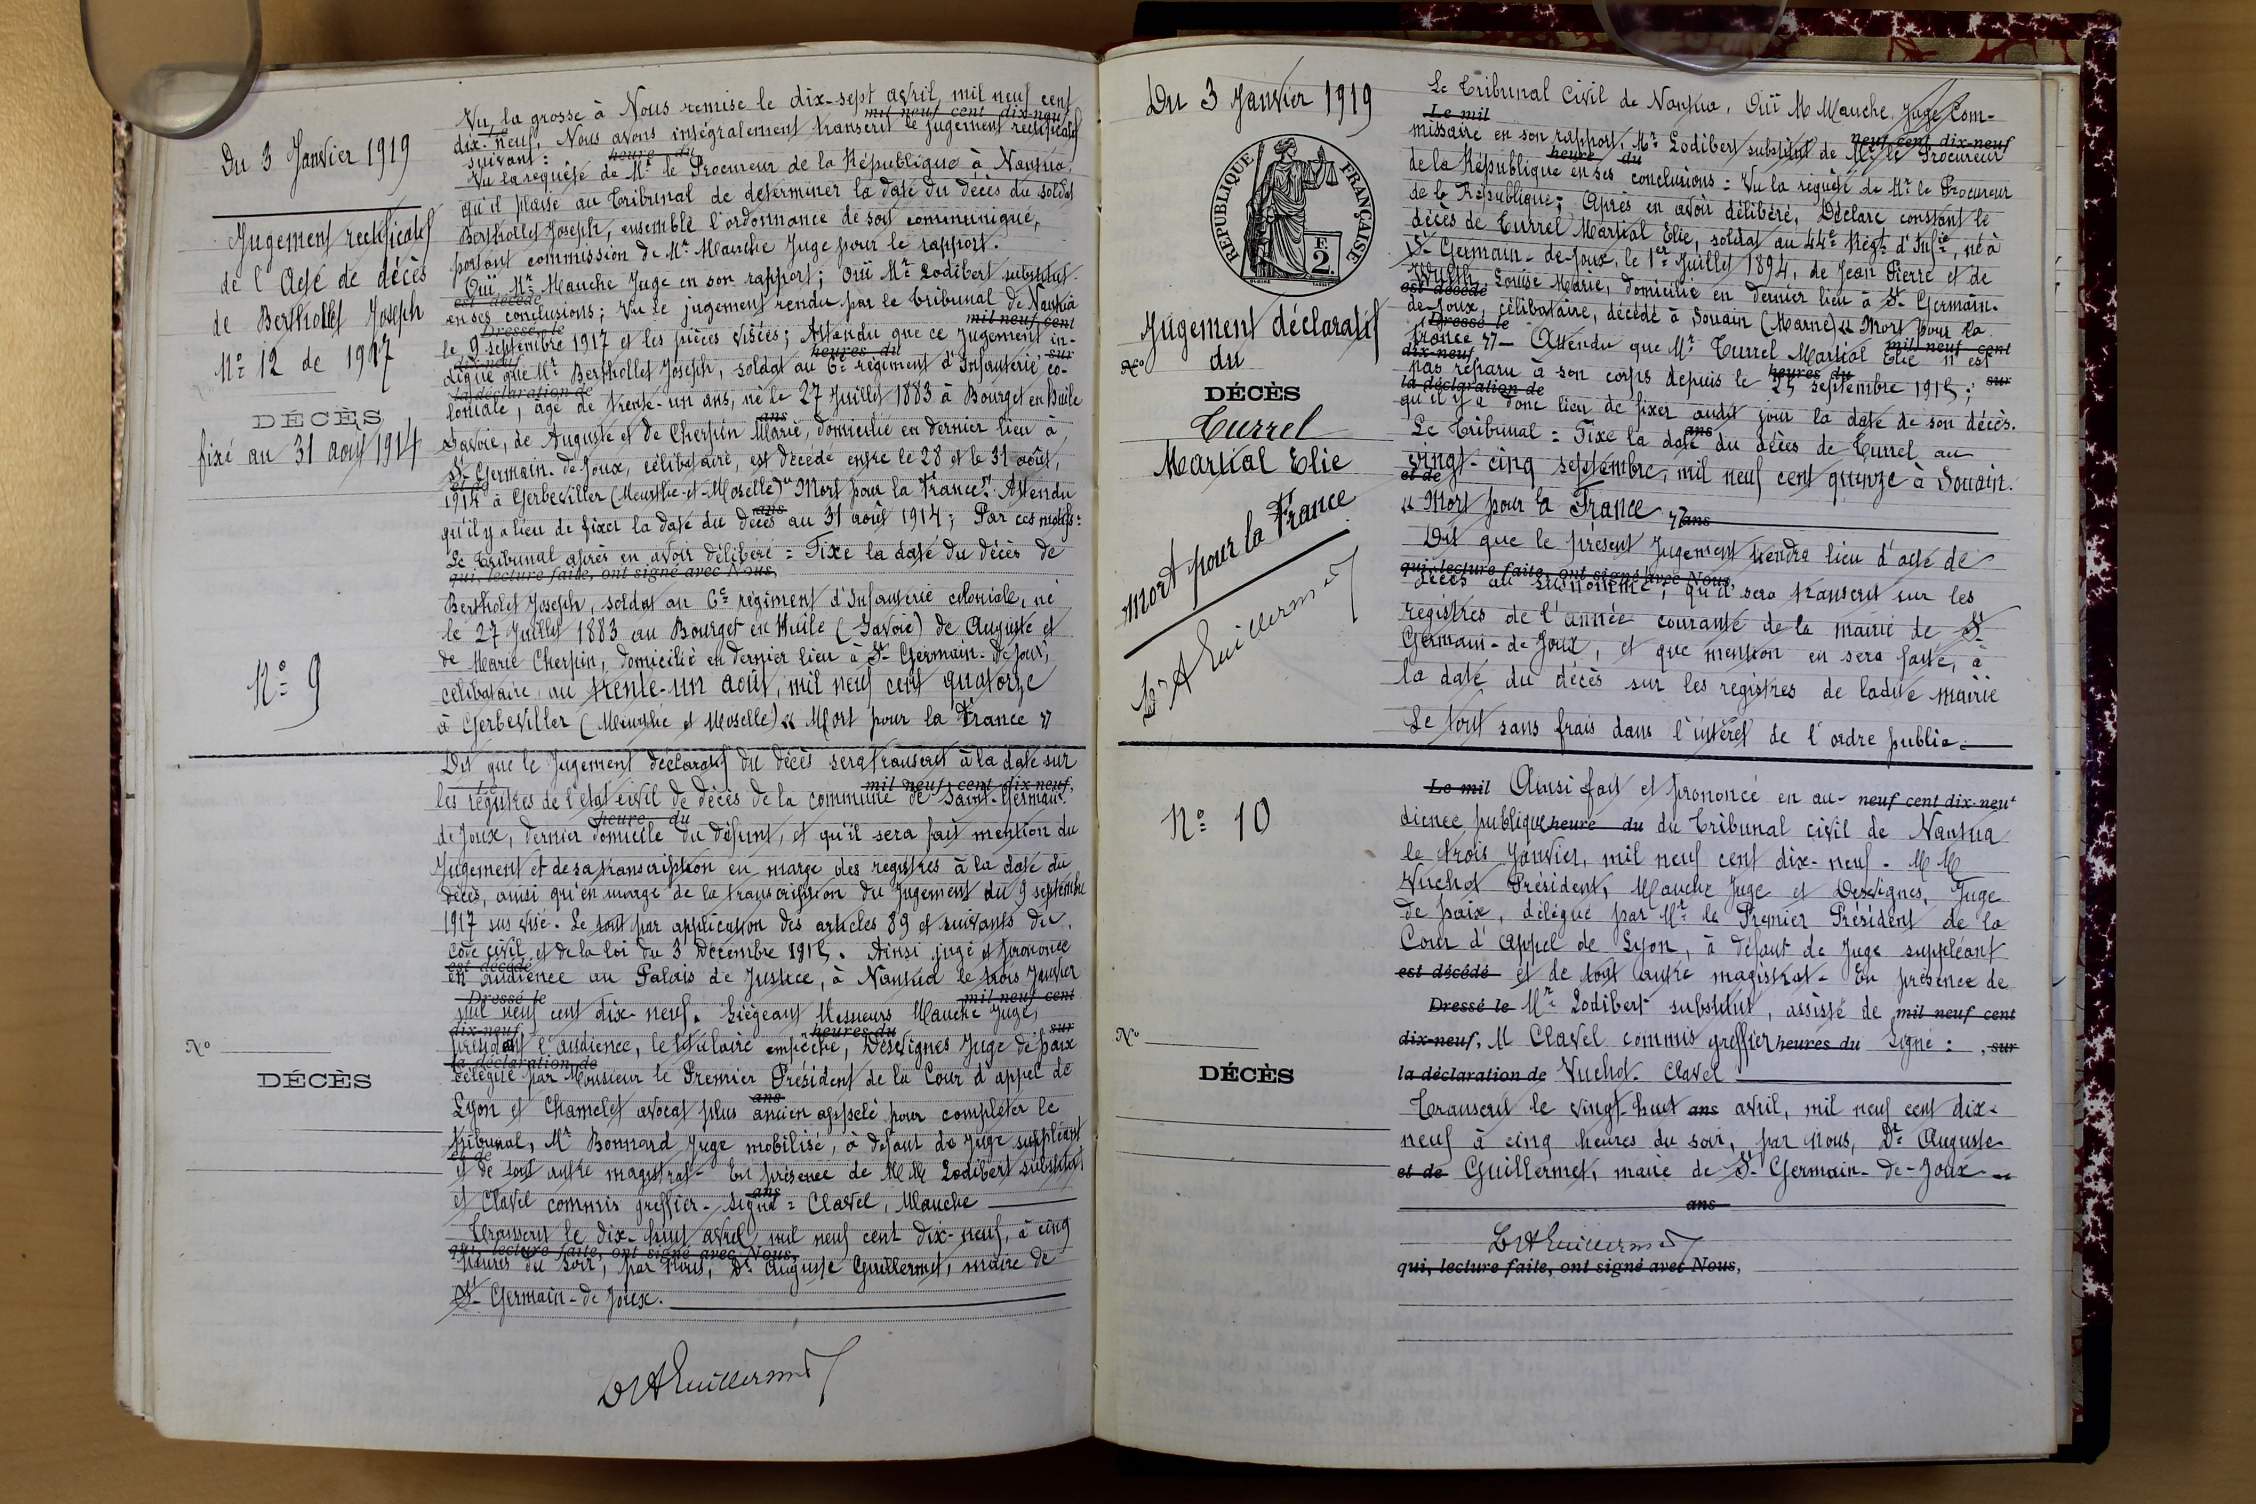 Du 3 Janvier 1919
Jugement rectificatif
de l'Acte de décès
de Berthollet Joseph
N° 12 de 1917
DÉCÈS
fixé au 31 août 1914
N° 9
N°
DÉCÈS
Vu la grosse à Nous remise le dix-sept avril, mil neuf cent
mil neuf cent dix-neuf
dix-neuf, Nous avons intégralement transcrit le jugement rectificatif
suivant : heure du
Vu la requête de Mr le Procureur de la République à Nantua,
qu'il plaise au Tribunal de déterminer la date du décès du soldat
Berthollet Joseph, ensemble l'ordonnance de soit communiqué,
portant commission de Mr Mauche Juge pour le rapport.
Ouï Mr Mauche Juge en son rapport ; Ouï Mr Lodibert substitut
est décédé
en ses conclusions ; Vu le jugement rendu par le Tribunal de Nantua
Dressé le mil neuf cent
le 9 septembre 1917 et les pièces visées ; Attendu que ce jugement in-
dix-neuf heures du sur
dique que Mr Berthollet Joseph, soldat au 6e régiment d'Infanterie co-
la déclaration de
loniale, âgé de trente-un ans, né le 27 Juillet 1883 à Bourget en Huile
ans
Savoie, de Auguste et de Cherpin Marie, domicilié en dernier lieu à
St Germain-de-Joux, célibataire, est décédé entre le 28 et le 31 août,
et de
1914 à Gerbeviller (Meurthe-et-Moselle) "Mort pour la France". Attendu
ans
qu'il y a lieu de fixer la date du décès au 31 août 1914 ; Par ces motifs :
Le Tribunal après en avoir délibéré = Fixe la date du décès de
qui, lecture faite, ont signé avec Nous,
Bertholet Joseph, soldat au 6e régiment d'Infanterie coloniale, né
le 27 Juillet 1883 au Bourget en Huile (Savoie) de Auguste et
de Marie Cherpin, domicilié en dernier lieu à St Germain-de-Joux,
célibataire au trente-un août, mil neuf cent quatorze
à Gerbeviller (Meurthe et Moselle) « Mort pour la France »
Dit que le Jugement déclaratif du décès sera transcrit à la date sur
Le mil neuf cent dix-neuf,
les registres de l'état civil de décès de la commune de Saint-Germain-
heure du
de Joux, dernier domicile du défunt, et qu'il sera fait mention du
Jugement et de sa transcription en marge des registres à la date du
décès, ainsi qu'en marge de la transcription du Jugement du 9 septembre
1917 sus visé. Le tout par application des articles 89 et suivants du
Code civil et de la loi du 3 Décembre 1915. Ainsi jugé et prononcé
est décédé
en audience au Palais de Justice, à Nantua le trois Janvier
Dressé le mil neuf cent
mil neuf cent dix-neuf. Siégeant Messieurs Mauche Juge,
dix-neuf heures du sur
président l'audience, le titulaire empêché, Desvignes Juge de paix
la déclaration de
délégué par Monsieur le Premier Président de la Cour d'appel de
ans
Lyon et Chamelet avocat plus ancien appelé pour compléter le
tribunal, Mr Bonnard Juge mobilisé, à défaut de Juge suppléant
et de
et de tout autre magistrat - En présence de MM Lodibert substitut
ans
et Clavel commis greffier - signé = Clavel, Mauche
Transcrit le dix-huit avril, mil neuf cent dix-neuf, à cinq
qui, lecture faite, ont signé avec Nous,
heures du soir, par Nous, Dr Auguste Guillermet, maire de
St Germain-de Joux.
Dr A Guillermet
Du 3 Janvier 1919
RÉPUBLIQUE FRANÇAISE
F.
2.
Jugement déclaratif
N° du
DÉCÈS
Turrel
Martial Elie
Mort pour la France
Dr A Guillermet
N° 10
N°
DÉCÈS
Le Tribunal Civil de Nantua, Ouï M Mauche, Juge Com-
Le mil neuf cent dix-neuf
missaire en son rapport, Mr Lodibert substitut de Mr le Procureur
heure du
de la République en ses conclusions = Vu la requête de Mr le Procureur
de la République ; Après en avoir délibéré, Déclare constant le
décès de Turrel Martial Elie, soldat au 44e Régt d'Infie, né à
St Germain-de-Joux, le 1er Juillet 1894, de Jean Pierre et de
Louise Marie, domicilié en dernier lieu à St Germain-
est décédé
de-Joux, célibataire, décédé à Souain (Marne) « Mort pour la
Dressé le
France » - Attendu que Mr Turrel Martial Elie n'est
dix-neuf mil neuf cent
pas réparu à son corps depuis le 25 septembre 1915 ;
la déclaration de heures du sur
qu'il y a donc lieu de fixer audit jour la date de son décès.
Le Tribunal = Fixe la date du décès de Turrel au
ans
vingt-cinq septembre, mil neuf cent quinze à Souain.
et de
« Mort pour la France » ans
Dit que le présent Jugement tiendra lieu d'acte de
qui, lecture faite, ont signé avec Nous,
décès au susnommé, qu'il sera transcrit sur les
registres de l'année courante de la mairie de St
Germain-de Joux, et que mention en sera faite, à
la date du décès sur les registres de ladite mairie
Le tout sans frais dans l'intérêt de l'ordre public.
Le mil Ainsi fait et prononcé en au- neuf cent dix-neuf
dience publique heure du du Tribunal civil de Nantua
le trois Janvier, mil neuf cent dix-neuf. MM
Vuchot Président, Mauche Juge et Desvignes, Juge
de paix, délégué par Mr le Premier Président de la
Cour d'appel de Lyon, à défaut de Juge suppléant
est décédé et de tout autre magistrat - En présence de
Dressé le Mr Lodibert substitut, assisté de mil neuf cent
dix-neuf, M Clavel commis greffier heures du Signé : , sur
la déclaration de Vuchot. Clavel
Transcrit le vingt-huit ans avril, mil neuf cent dix-
neuf à cinq heures du soir, par Nous, Dr Auguste
et de Guillermet, maire de St Germain-de-Joux
ans
Dr A Guillermet
qui, lecture faite, ont signé avec Nous,